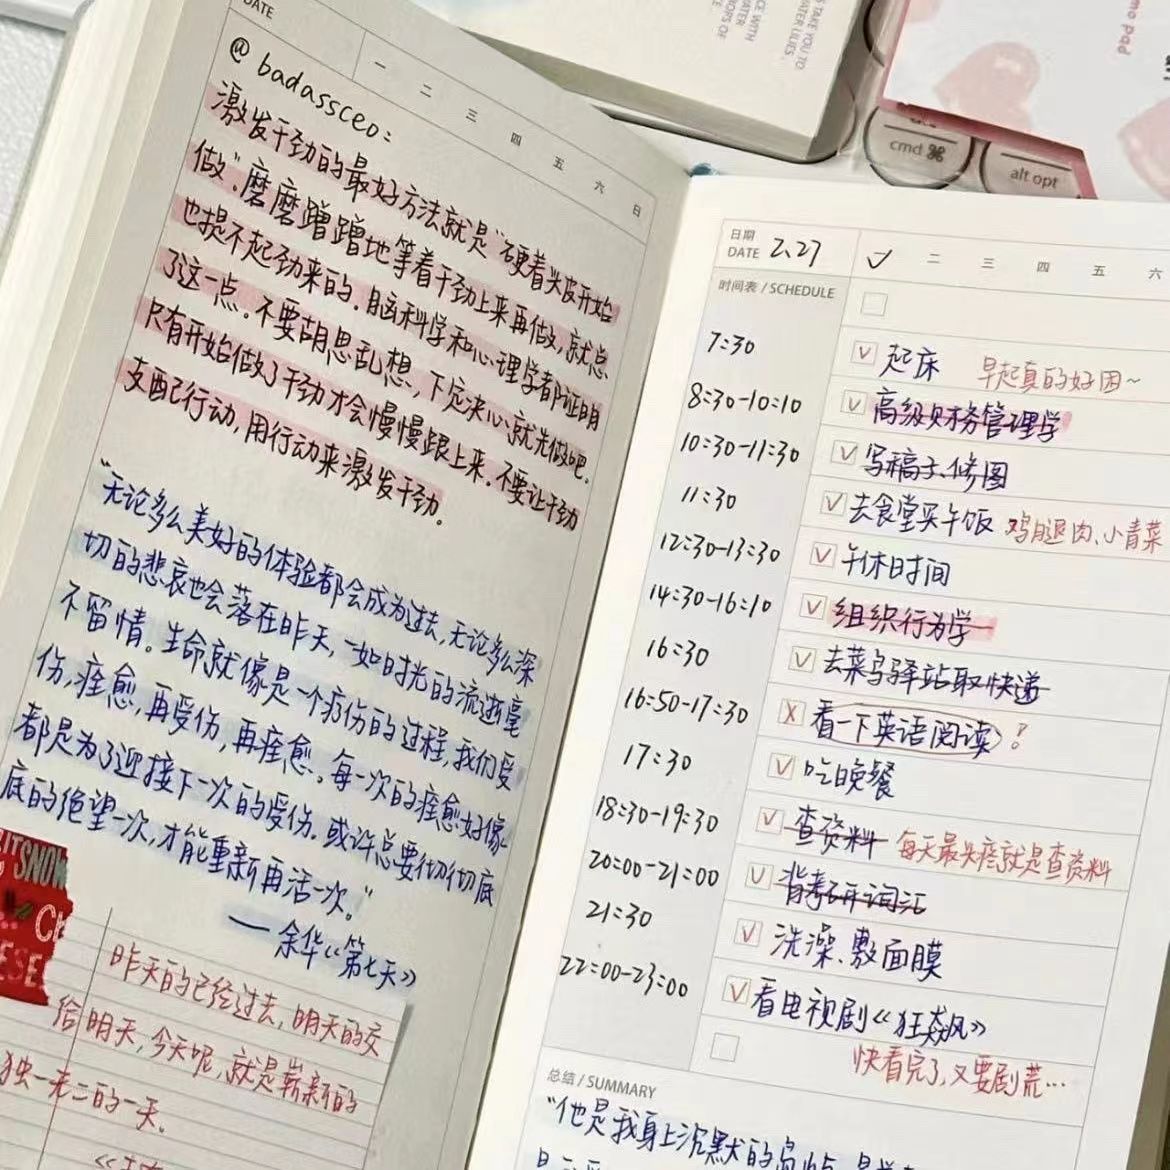 DATE
一 二 三 四 五 六 日
@badassceo:
激发干劲的最好方法就是“硬着头皮开始
做”.磨磨蹭蹭地等着干劲上来再做,就点
也提不起劲来的.脑科学和心理学都证明
了这一点.不要胡思乱想,下定决心就先做吧.
只有开始做了干劲才会慢慢跟上来.不要让干劲
支配行动,用行动来激发干劲.
“无论多么美好的体验都会成为过去,无论多么深
切的悲哀也会落在昨天,一如时光的流逝毫
不留情。生命就像是一个疗伤的过程,我们受
伤,痊愈,再受伤,再痊愈。每一次的痊愈好像
都是为了迎接下一次的受伤.或许总要彻彻底
底的绝望一次,才能重新再活一次。”
——余华《第七天》
ITSNOW
CH
ESE
昨天的已经过去,明天的交
给明天,今天呢,就是崭新的
独一无二的一天.
TAKE YOU TO
WATER LILIES.
CE WITH
WATER
ORS OF
memo pad
cmd ⌘
alt opt
日期
DATE 2.27 二 三 四 五 六
时间表 / SCHEDULE
7:30 起床 早起真的好困~
8:30-10:10 高级财务管理学
10:30-11:30 写稿子、修图
11:30 去食堂买午饭 鸡腿肉、小青菜
12:30-13:30 午休时间
14:30-16:10 组织行为学
16:30 去菜鸟驿站取快递
16:50-17:30 看一下英语阅读?
17:30 吃晚餐
18:30-19:30 查资料 每天最头疼就是查资料
20:00-21:00 背考研词汇
21:30 洗澡、敷面膜
22:00-23:00 看电视剧《狂飙》
快看完了,又要剧荒…
总结 / SUMMARY
“他是我身上沉默的